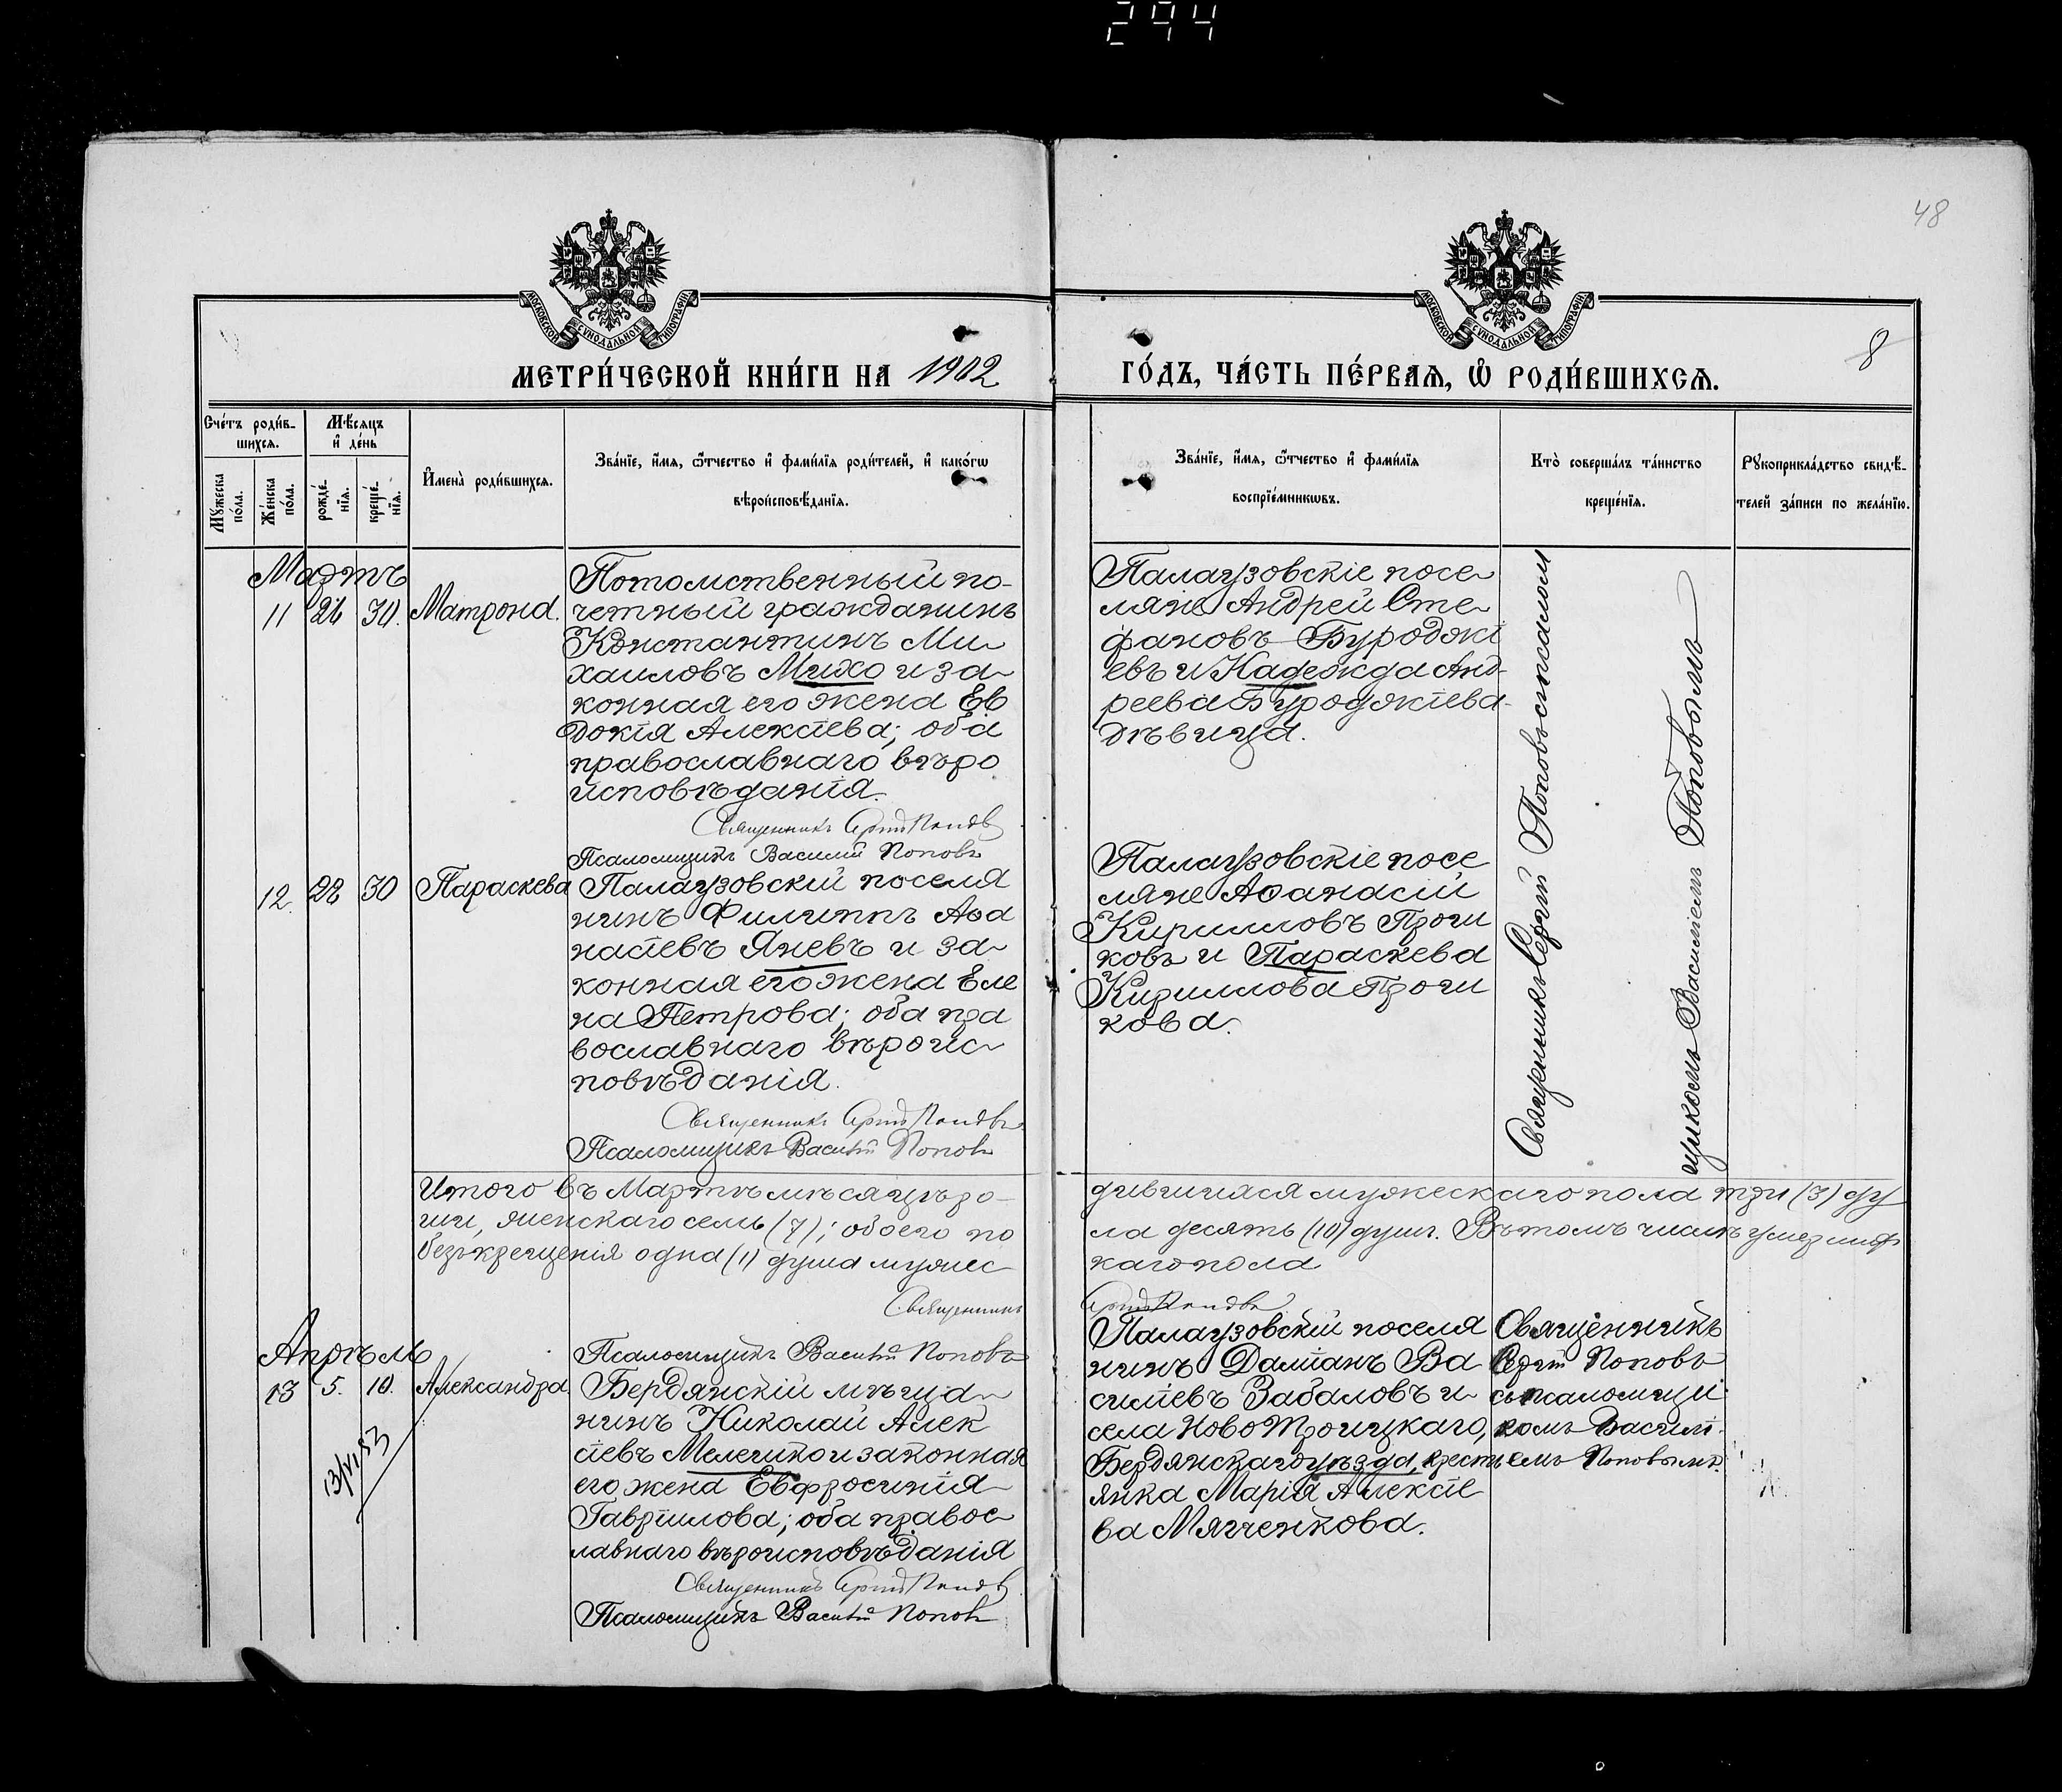 294
48
8
МОСКОВСКОЙ СѴНОДАЛЬНОЙ ТИПОГРАФІИ
МОСКОВСКОЙ СѴНОДАЛЬНОЙ ТИПОГРАФІИ
МЕТРИ́ЧЕСКОЙ КНИ́ГИ НА 1902
ГО́ДЪ, ЧА́СТЬ ПЕ́РВАѦ, Ѡ РОДИ́ВШИХСѦ.
Сче́тъ роди́в-
шихсѧ.
Мꙋ́жеска
по́ла.
Же́нска
по́ла.
Мѣ́сѧцъ
и҆ де́нь
рожде́-
нїѧ.
креще́-
нїѧ.
И҆мена̀ роди́вшихсѧ.
Зва́нїе, и҆́мѧ, ѻ҆́тчество и҆ фами́лїѧ роди́телей, и҆ како́гѡ
вѣроисповѣ́данїѧ.
Зва́нїе, и҆́мѧ, ѻ҆́тчество и҆ фами́лїѧ
воспрїе́мникѡвъ.
Кто̀ соверша́лъ та́инство
креще́нїѧ.
Рꙋкоприкла́дство свидѣ́-
телей за́писи по жела́нїю.
Мартъ
11 26 30. Матрона.
Потомственный по-
четный гражданинъ
Константинъ Ми
хаиловъ Михо и за
конная его жена Ев
докія Алексіева; оба
православнаго вѣро
исповѣданія.
Священникъ Сергій Поповъ
Псаломщикъ Василій Поповъ
Палаузовскіе посе
ляне Андрей Сте
фановъ Буроджі
евъ и Надежда Анд
реева Буроджіева
дѣвица.
12. 28 30 Параскева
Палаузовскій поселя
нинъ Филиппъ Аѳа
насіевъ Яневъ и за
конная его жена Еле
на Петрова; оба пра
вославнаго вѣроис
повѣданія.
Священникъ Сергій Поповъ
Псаломщикъ Василій Поповъ
Палаузовскіе посе
ляне Аѳанасій
Кирилловъ Проги
ковъ и Параскева
Кириллова Проги
кова.
Священникъ Сергій Поповъ съ псалом
щикомъ Василіемъ Поповымъ
Итого въ Мартѣ мѣсяцѣ ро
дившихся мужескаго пола три (3) ду
ши, женскаго семь (7); обоего по
ла десять (10) душъ. Въ томъ числѣ умерший
безъ крещенія одна (1) душа мужес
каго пола
Священникъ
Сергій Поповъ
Псаломщикъ Василій Поповъ
Апрѣль
13 5. 10. Александра
13/VI 53
Бердянскій мѣща
нинъ Николай Алек
сіевъ Мелешко и законная
его жена Евфросинія
Гавріилова; оба правос
лавнаго вѣроисповѣданія
Священникъ Сергій Поповъ
Псаломщикъ Василій Поповъ
Палаузовскій поселя
нинъ Даміанъ Ва
силіевъ Забаловъ и
села Ново Троицкаго,
Бердянскаго уѣзда, кресть
янка Марія Алексіе
ва Мягченкова.
Священникъ
Сергій Поповъ
съ псаломщи
комъ Василі
емъ Поповымъ.